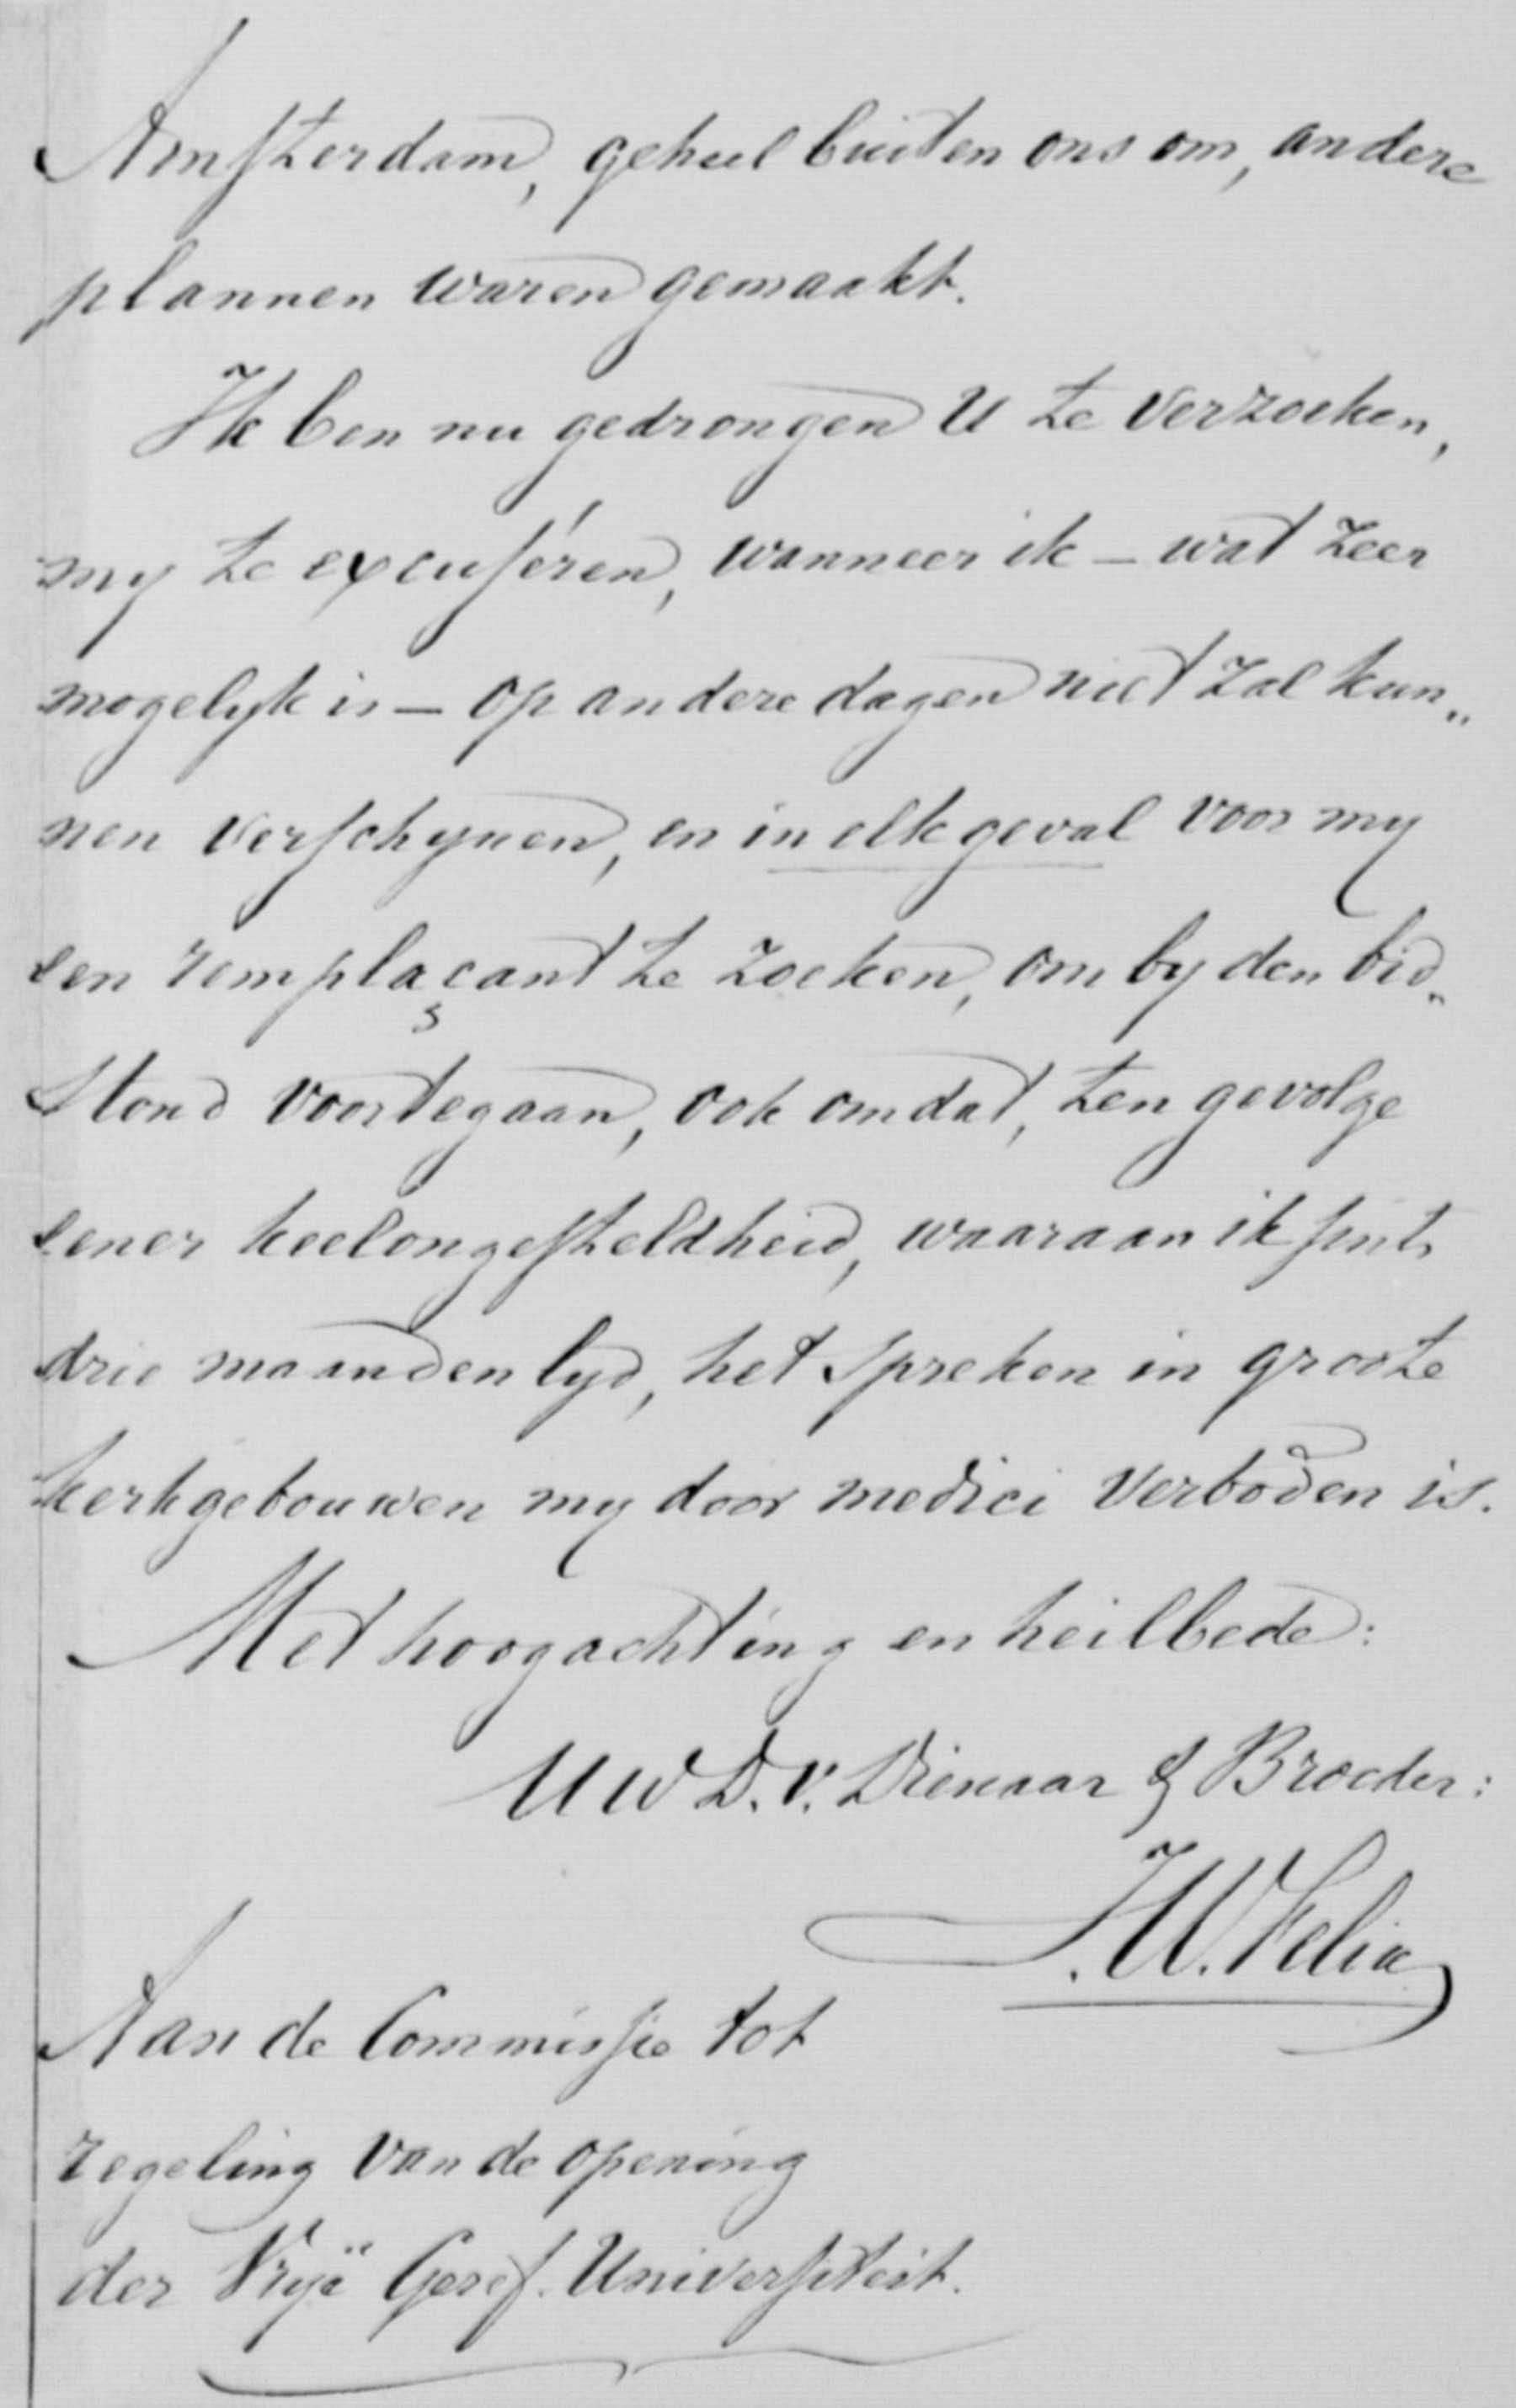 Amsterdam, geheel buiten ons om, andere
plannen waren gemaakt.
Ik ben nu gedrongen U te verzoeken,
my te excuséren, wanneer ik – wat zeer
mogelyk is – op andere dagen niet zal kun„
nen verschynen, en in elk geval voor my
een remplaçant te zoeken, om by den bid„
stond voortegaan, ook omdat, ten gevolge
eener keelongesteldheid, waaraan ik sints
drie maanden lyd, het spreken in groote
kerkgebouwen my door medici verboden is.
Met hoogachting en heilbede:
Uw D.V. Dienaar & Broeder:
J.W. Felix
Aan de Commissie tot
regeling van de opening
der Vryë Geref. Universiteit.